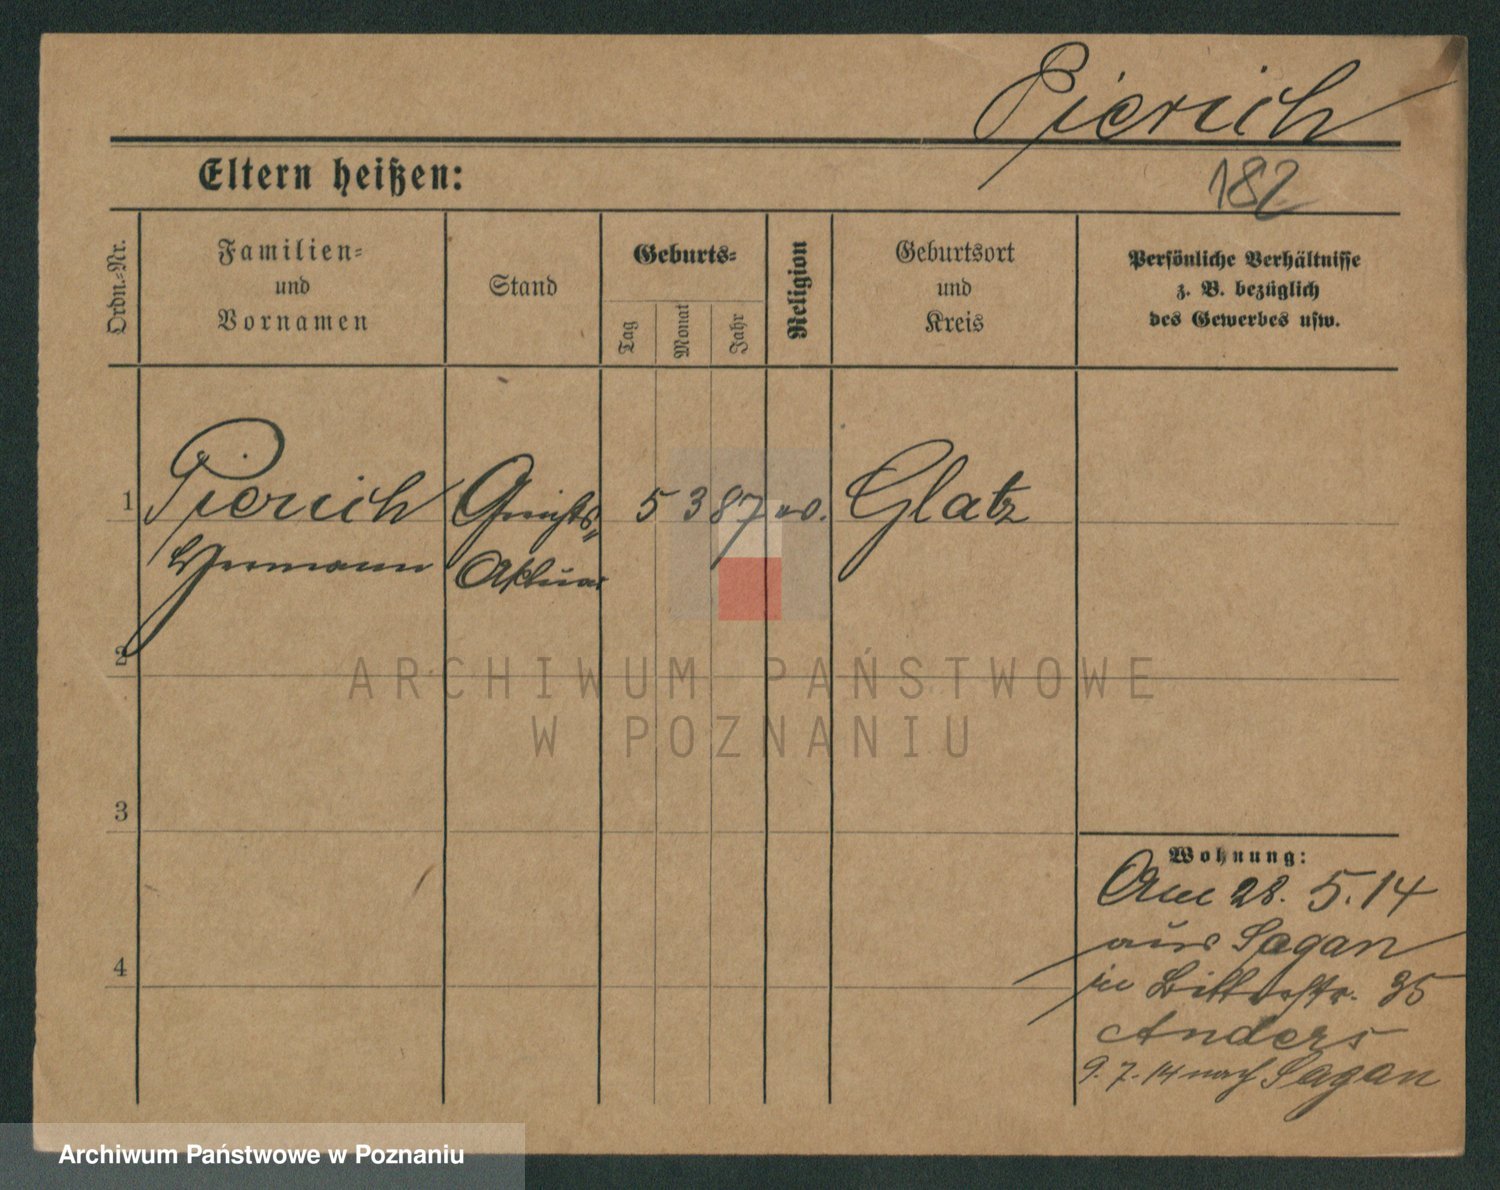 Pierich
182
Eltern heißen:
Ordn.-Nr.
Familien-
und
Vornamen
Stand
Geburts-
Tag
Monat
Jahr
Religion
Geburtsort
und
Kreis
Persönliche Verhältnisse
z. B. bezüglich
des Gewerbes usw.
1
Pierich Gerichts- 5 3 87 Glatz
Hermann Aktuar
2
3
4
Wohnung:
Am 28. 5. 14
aus Sagan
in Bitterstr. 35
Anders
9. 7. 14 nach Sagan
ARCHIWUM PAŃSTWOWE
W POZNANIU
Archiwum Państwowe w Poznaniu